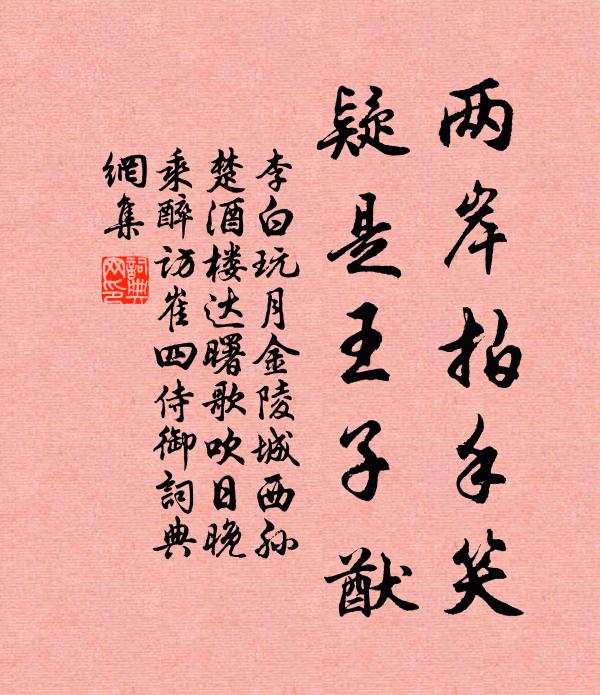 两岸拍手笑
疑是王子猷
李白玩月金陵城西孙
楚酒楼达曙歌吹日晚
乘醉访崔四侍御词典
網集
詞典網印